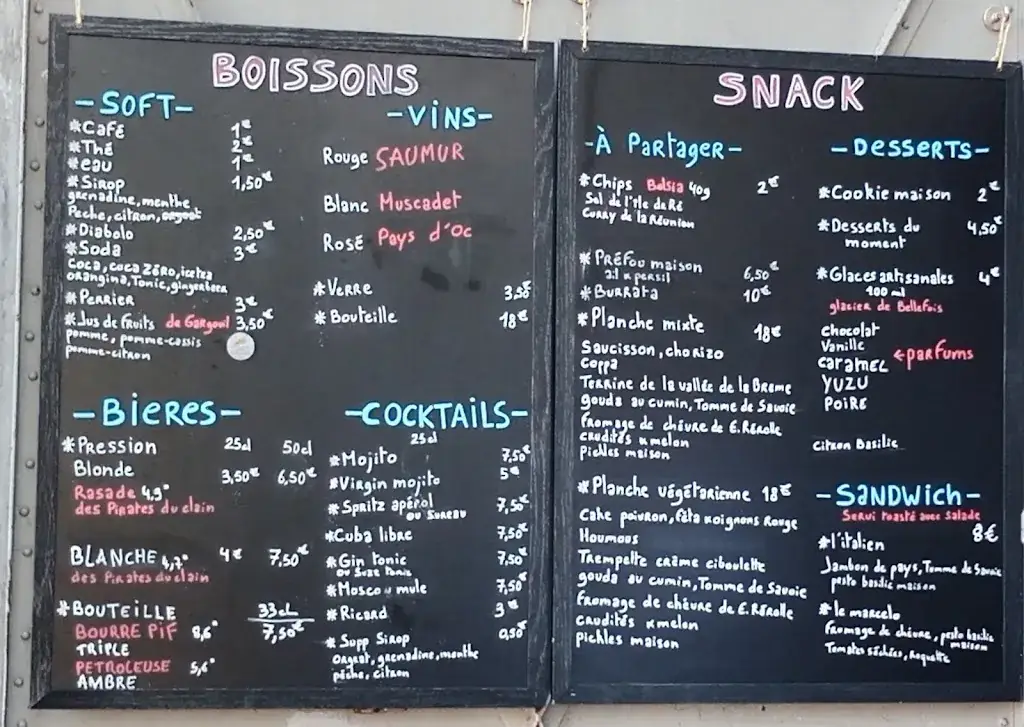 BOISSONS
-SOFT-
*Café 1€
*Thé 2€
*eau 1€
*Sirop 1,50€
grenadine, menthe
Peche, citron, orgeat
*Diabolo 2,50€
*Soda 3€
Coca, coca Zéro, icetea
orangina, Tonic, gingerbeer
*Perrier 3€
*Jus de fruits de Gargouil 3,50€
pomme, pomme-cassis
pomme-citron
-VINS-
Rouge SAUMUR
Blanc Muscadet
Rosé Pays d'Oc
*Verre 3,50€
*Bouteille 18€
-BIERES-
*Pression 25cl 50cl
Blonde 3,50€ 6,50€
Rasade 4,9°
des Pirates du clain
BLANCHE 4,7° 4€ 7,50€
des Pirates du clain
*BOUTEILLE 33cL
BOURRE PIF 8,6° 7,50€
TRIPLE
PETROLEUSE 5,6°
AMBRE
-COCKTAILS-
25cl
*Mojito 7,50€
*Virgin mojito 5€
*Spritz apérol 7,50€
ou Sureau
*Cuba libre 7,50€
*Gin tonic 7,50€
ou Suze tonic
*Moscow mule 7,50€
*Ricard 3€
*Supp Sirop 0,50€
Orgeat, grenadine, menthe
pêche, citron
SNACK
-À Partager-
*Chips Belsia 40g 2€
Sel de l'Ile de Ré
Curry de la Réunion
*Préfou maison 6,50€
ail & persil
*Burrata 10€
*Planche mixte 18€
Saucisson, chorizo
Coppa
Terrine de la vallée de la Brame
gouda au cumin, Tomme de Savoie
fromage de chèvre de E.Rérolle
crudités & melon
pickles maison
*Planche végétarienne 18€
Cake poivron, féta & oignons Rouge
Houmous
Trempette crème ciboulette
gouda au cumin, Tomme de Savoie
fromage de chèvre de E.Rérolle
crudités & melon
pichles maison
-DESSERTS-
*Cookie maison 2€
*Desserts du 4,50€
moment
*Glaces artisanales 4€
100 ml
glacier de Bellefois
chocolat
Vanille
caramel ←parfums
YUZU
POIRE
Citron Basilic
-SANDWich-
Servi toasté avec salade
8€
*l'italien
Jambon de pays, Tomme de Savoie
pesto basilic maison
*le marcelo
fromage de chèvre, pesto basilic
maison
Tomates séchées, Roquette